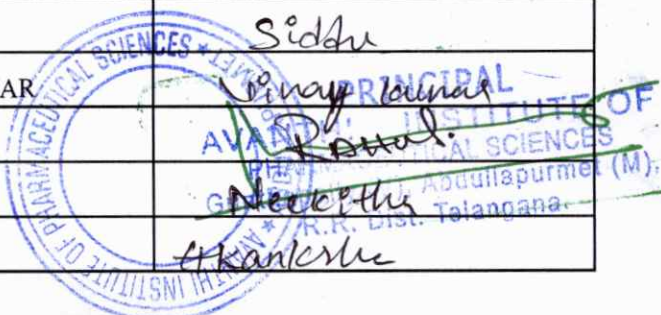 Siddu
AR
Vinay kumar
Rahul.
Neekitha
Akanksha
PRINCIPAL
AVANTHI INSTITUTE OF
PHARMACEUTICAL SCIENCES
Abdullapurmet (M),
R.R. Dist. Telangana.
AVANTHI INSTITUTE OF PHARMACEUTICAL SCIENCES